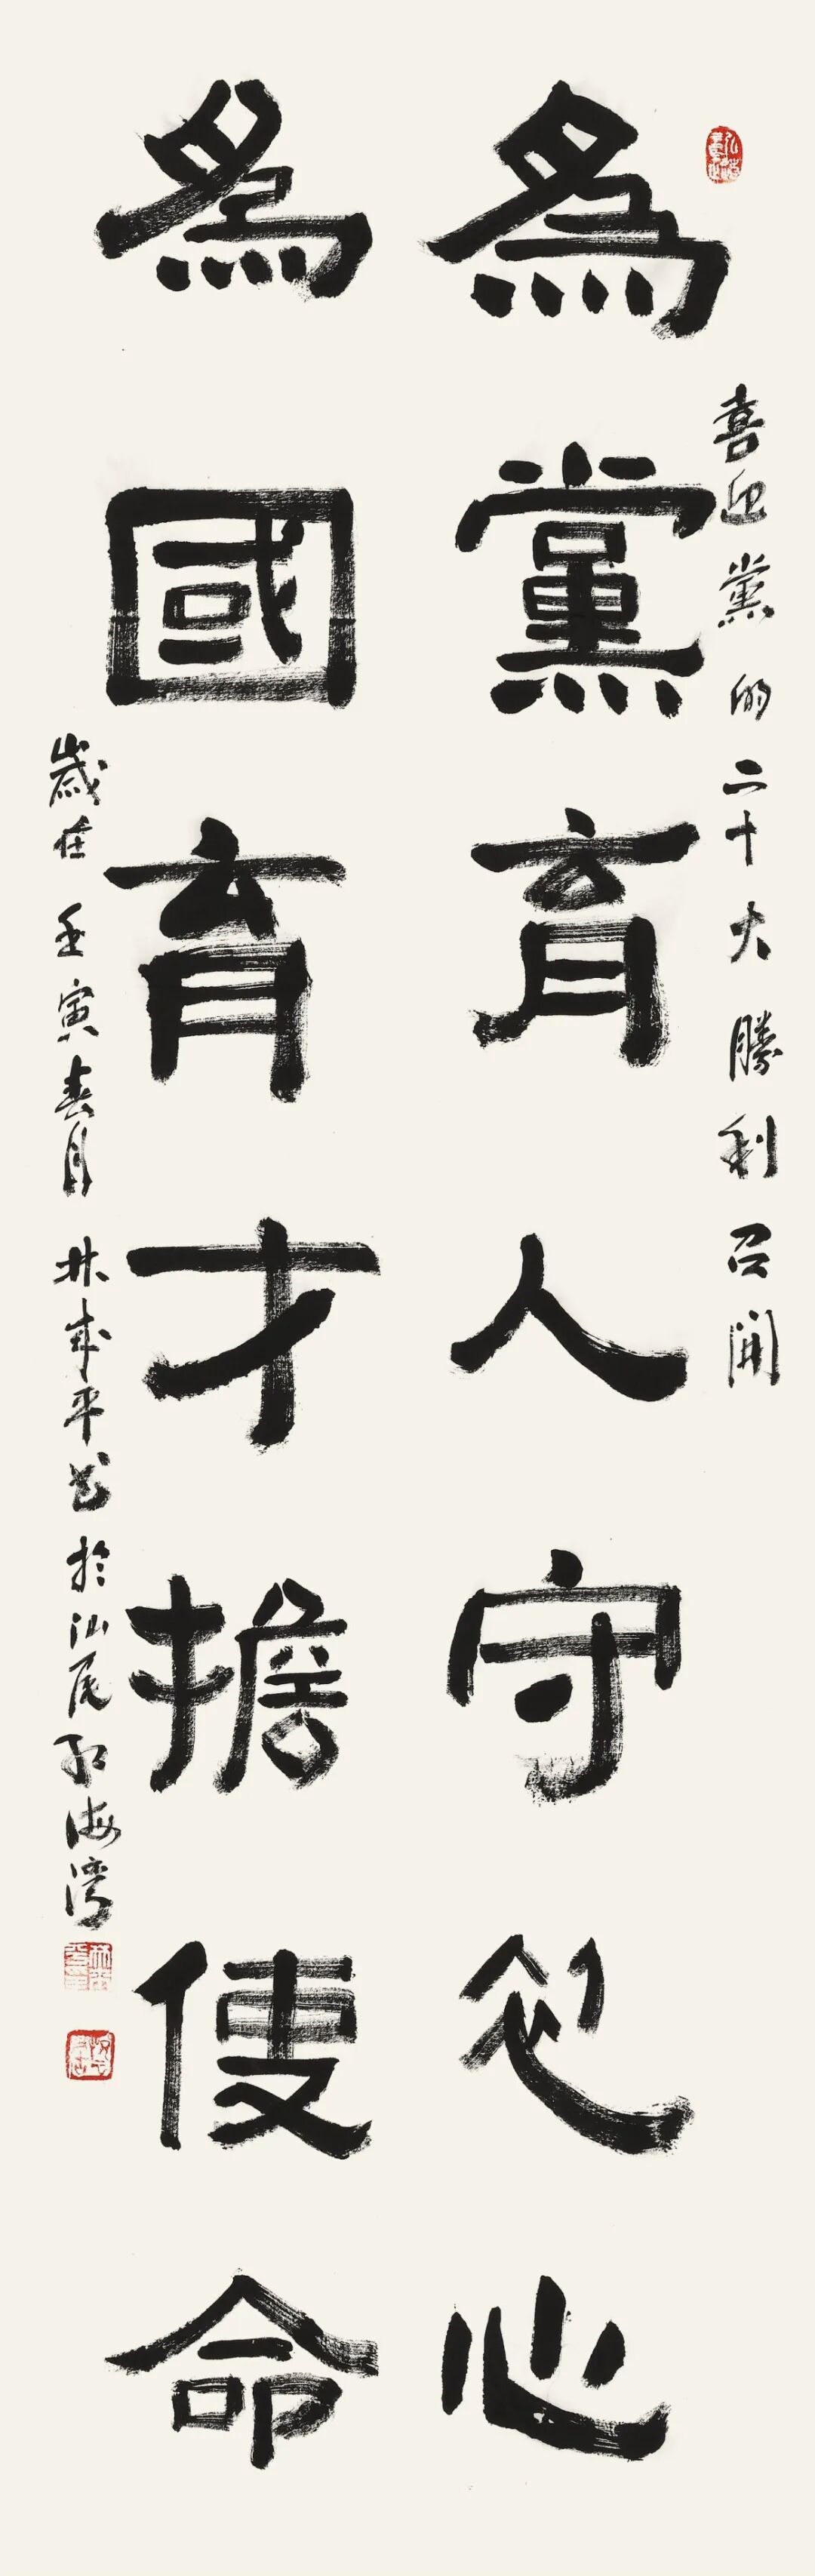 喜迎黨的二十大勝利召開
為黨育人守初心
為國育才擔使命
歲在壬寅春月林成平書於汕尾紅海灣